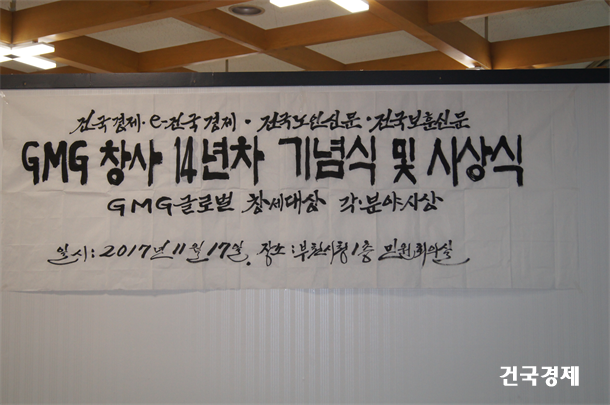 건국경제·e-건국경제·건국노인신문·건국보훈신문
GMG 창사 14년차 기념식 및 시상식
GMG글로벌 창세대상 각·분야시상
일시:2017년 11월 17일. 장소:부천시청1층 민원회의실
건국경제